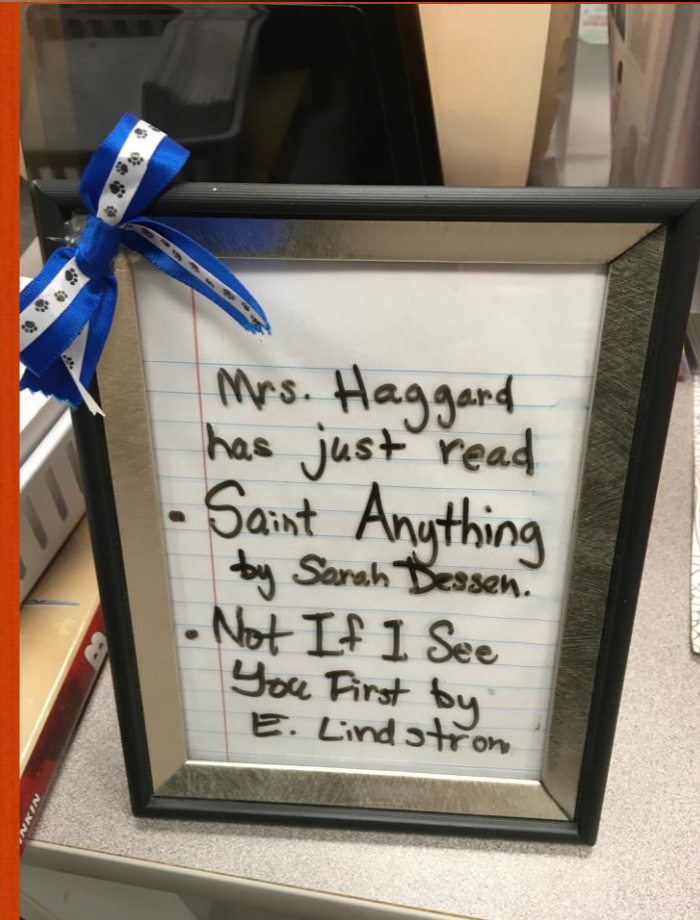 Mrs. Haggard
has just read
• Saint Anything
by Sarah Dessen.
• Not If I See
You First by
E. Lindstrom
NKIN